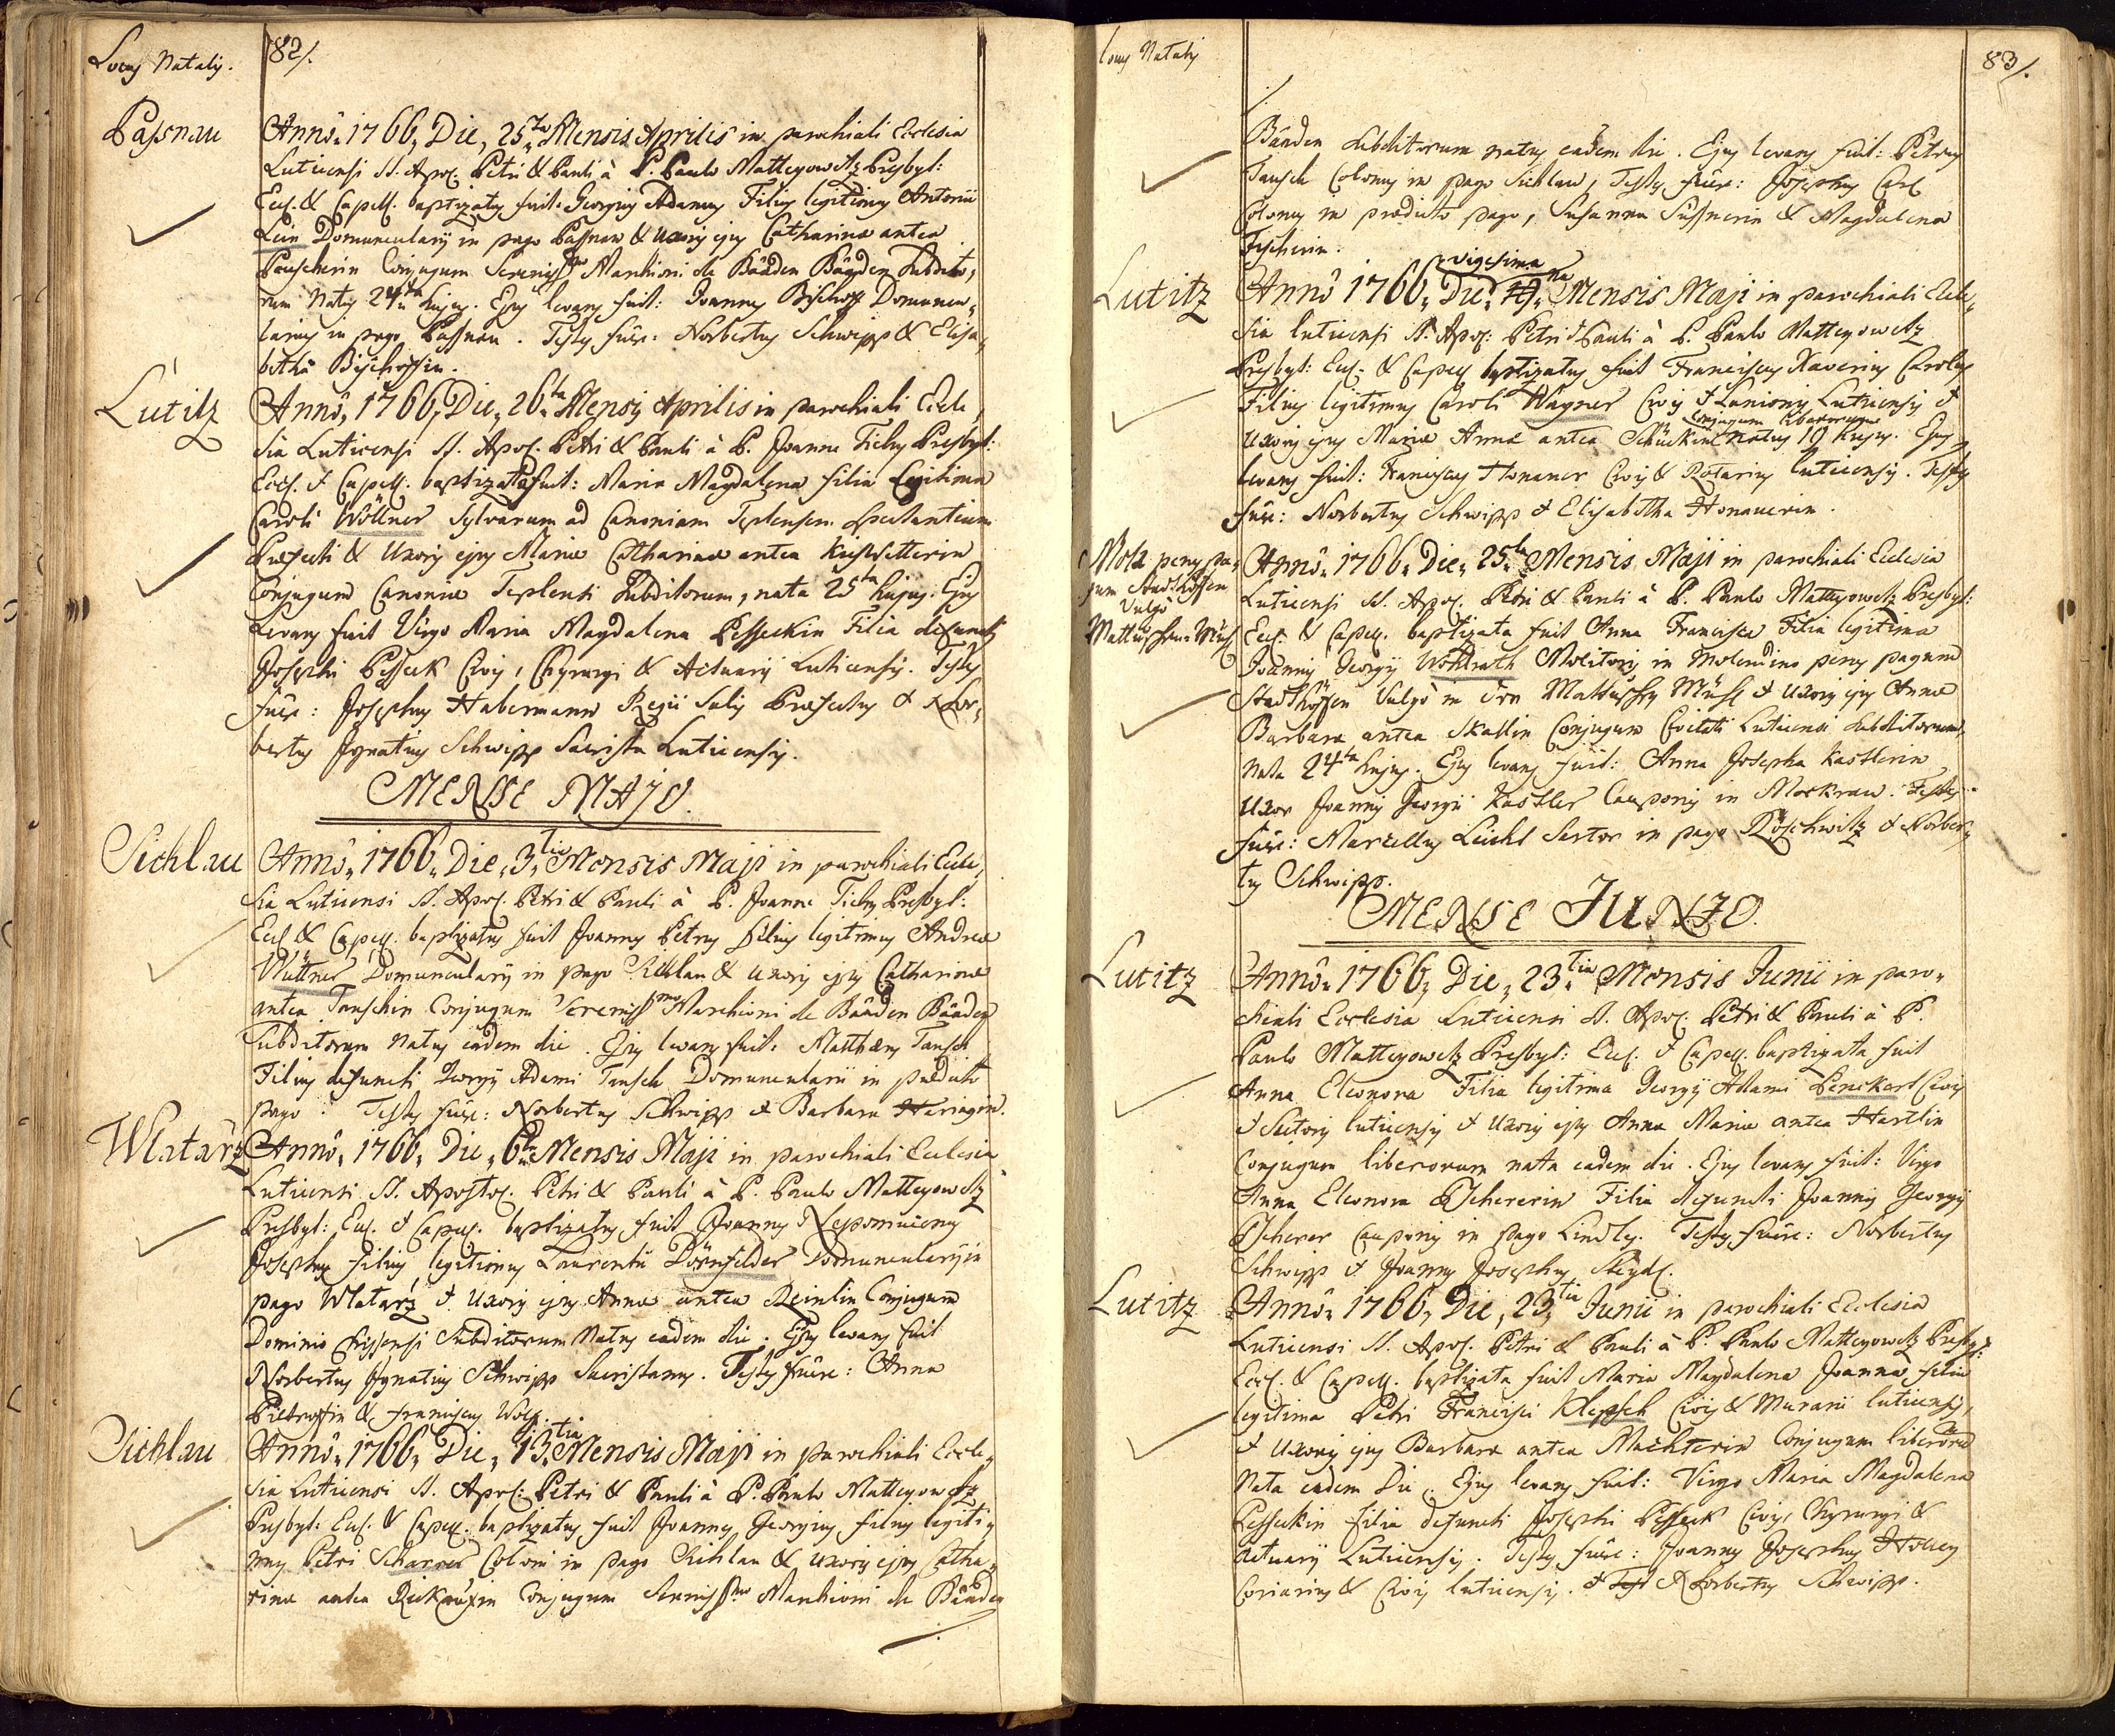 Locus Natalis.
82/.
Passnau
Anno 1766, Die, 25ta Mensis Aprilis in parochiali Ecclesia
Luticensi SS. Apos. Petri & Pauli à P. Paulo Matteyowetz Presbyt:
Eccl. & Capell. baptizatus fuit: Georgius Adamus Filius legitimus Antonii
Domuncularij in pago Passnau & Uxoris ejus Catharinae antea
Conjugum Sereniss.mo Marchioni de Bäaden Bäaden Subdito-
rum Natus 24ta hujus. Ejus levans fuit: Joannes Bischoff Domuncu-
larius in pago Passnau. Testes fuêre: Norbertus Schwipp & Elisa-
betha Bischoffin.
Lutitz
Anno, 1766, Die, 26ta Mensis Aprilis in parochiali Eccle-
sia Luticensi SS. Apos. Petri & Pauli à P. Joanne Tichy Presbyt:
Eccl. & Capell. baptizata fuit: Maria Magdalena Filia Legitima
Caroli Wöllner Sylvarum ad Canoniam Teplensem spectantium
Praefecti & Uxoris ejus Mariae Catharinae antea
Conjugum Canoniae Teplensi Subditorum, nata 25ta hujus. Ejus
Levans fuit Virgo Maria Magdalena Pesseckin Filia defuncti
Josephi Pesseck Civis, Chyrurgi & Actuarij Luticensis. Testes
fuêre: Josephus Habermann Regii Salis Praefectus & Nor-
bertus Ignatius Schwipp Sacrista Luticensis.
MENSE MAJO.
Sichlau
Anno, 1766, Die, 3tia Mensis Maji in parochiali Eccle-
sia Luticensi SS. Apos. Petri & Pauli à P. Joanne Tichy Presbyt:
Eccl. & Capell. baptizatus fuit Joannes Petrus filius legitimus Andreae
Wüttner Domuncularij in pago Sichlau & Uxoris ejus Catharinae
antea Tauschin Conjugum Sereniss.mo Marchioni de Bäaden Bäaden
Subditorum Natus eadem die. Ejus levans fuit: Matthaeus Tausch
Filius defuncti Georgij Adami Tausch Domuncularii in praedicto
pago: Testes fuêre: Norbertus Schwipp & Barbara
Wlatarz
Anno, 1766, Die, 6ta Mensis Maji in parochiali Ecclesia
Luticensi SS. Apostol. Petri & Pauli à P. Paulo Matteyowetz
Presbyt: Eccl. & Capell. baptizatus fuit Joannes Nepomucenus
Josephus filius legitimus Laurentii Dörnfelder Domuncularij in
pago Wlatarz & Uxoris ejus Annae antea Reinlin Conjugum
Dominio Subditorum Natus eadem die. Ejus levans fuit
Norbertus Ignatius Schwipp Sacristanus. Testes fuêre: Anna
& Franciscus Wolf.
Sichlau
Anno, 1766, Die, 13tia Mensis Maji in parochiali Eccle-
sia Luticensi SS. Apos: Petri & Pauli à P. Paulo Matteyowetz
Presbyt: Eccl. & Capell. baptizatus fuit Joannes Georgius filius legiti-
mus Petri Scharrer Coloni in pago Sichlau & Uxoris ejus Catha-
rinae antea Conjugum Sereniss.mo Marchioni de Bäaden
Locus Natalis
83/.
Bäaden Subditorum natus eadem die. Ejus levans fuit: Petrus
Tausch Colonus in pago Sichlau, Testes fuêre: Josephus Carl
Colonus in praedicto pago, Susanna Süssnerin & Magdalena
Fischerin.
Lutitz
Anno 1766, Die, vigesima Mensis Maji in parochiali Eccle-
sia Luticensi SS. Apos: Petri & Pauli à P. Paulo Matteyowetz
Presbyt: Eccl. & Capell. baptizatus fuit Franciscus Xaverius Carolus
Filius legitimus Caroli Wagner Civis & Lanionis Luticensis &
Uxoris ejus Mariae Annae antea Schückin Conjugum liberorum natus 19 hujus. Ejus
levans fuit: Franciscus Honauer Civis & Rotarius Luticensis. Testes
fuêre: Norbertus Schwipp & Elisabetha Honauerin.
Mola penes pa-
gum Stadthöffen
Vulgò
Mattuschka-Mühl
Anno, 1766, Die, 25ta Mensis Maji in parochiali Ecclesia
Luticensi SS. Apos. Petri & Pauli à P. Paulo Matteyowetz Presbyt:
Eccl. & Capell. baptizata fuit Anna Francisca Filia legitima
Joannis Georgij Wohlrath Molitoris in Molendino penes pagum
Stadthöffen Vulgò in der Mühl & Uxoris ejus Annae
Barbarae antea Conjugum Civitati Luticensi Subditorum
Nata 24ta hujus. Ejus levans fuit: Anna Josepha Kastlerin
Uxor Joannis Georgii Kastler Cauponis in Mockrau. Testes
fuêre: Marcellus Leicht Sartor in pago Röschwitz & Norber-
tus Schwipp.
MENSE JUNIO.
Lutitz
Anno, 1766, Die, 23tia Mensis Junii in paro-
chiali Ecclesia Luticensi SS. Apos. Petri & Pauli à P.
Paulo Matteyowetz Presbyt: Eccl. & Capell. baptizata fuit
Anna Eleonora Filia legitima Georgij Adami Lenckart Civis
& Sutoris Luticensis & Uxoris ejus Annae Mariae antea Hartlin
Conjugum liberorum nata eadem die. Ejus levans fuit: Virgo
Anna Eleonora Filia defuncti Joannis Georgij
Cauponis in pago Lindles. Testes fuêre: Norbertus
Schwipp & Joannes Josephus
Lutitz
Anno, 1766, Die, 23tia Junii in parochiali Ecclesia
Luticensi SS. Apos. Petri & Pauli à P. Paulo Matteyowetz Presbyt:
Eccl. & Capell. baptizata fuit Maria Magdalena Joanna filia
legitima Petri Francisci Klepsch Civis & Murarii Luticensis,
& Uxoris ejus Barbarae antea Machterin Conjugum liberorum
Nata eadem Die. Ejus levans fuit: Virgo Maria Magdalena
Pesseckin filia defuncti Josephi Pesseck Civis, Chyrurgi &
Actuarij Luticensis. Testes fuêre: Joannes Josephus
Coriarius & Civis Luticensis. & Norbertus Schwipp.